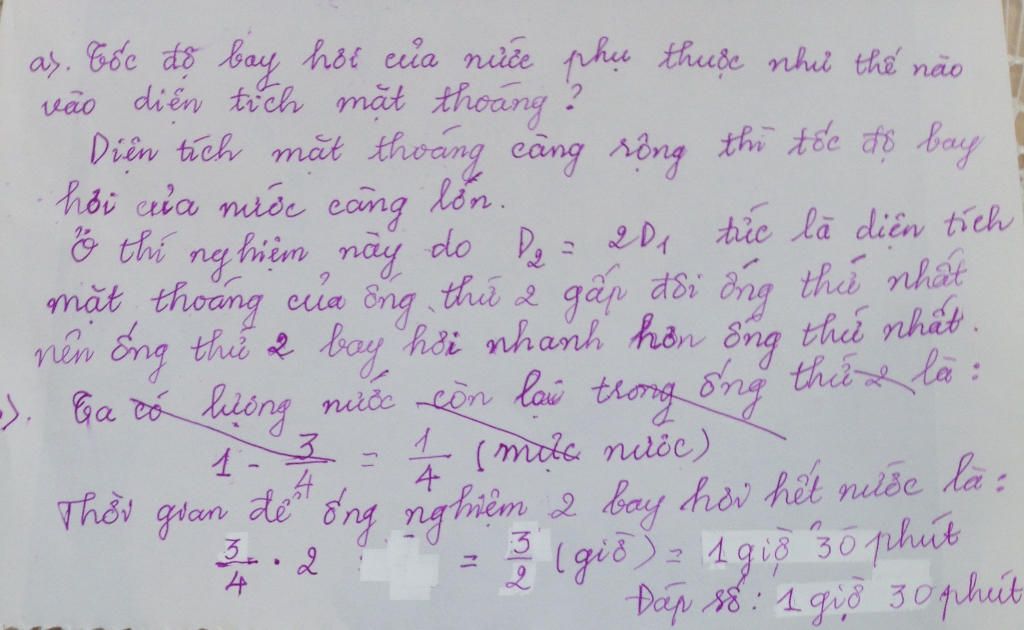 a). Tốc độ bay hơi của nước phụ thuộc như thế nào
vào diện tích mặt thoáng?
Diện tích mặt thoáng càng rộng thì tốc độ bay
hơi của nước càng lớn.
Ở thí nghiệm này do D2 = 2D1 tức là diện tích
mặt thoáng của ống thứ 2 gấp đôi ống thứ nhất
nên ống thứ 2 bay hơi nhanh hơn ống thứ nhất.
). Ta có lượng nước còn lại trong ống thứ 2 là:
1 - 3/4 = 1/4 (mực nước)
Thời gian để ống nghiệm 2 bay hơi hết nước là:
3/4 . 2 = 3/2 (giờ) = 1 giờ 30 phút
Đáp số: 1 giờ 30 phút